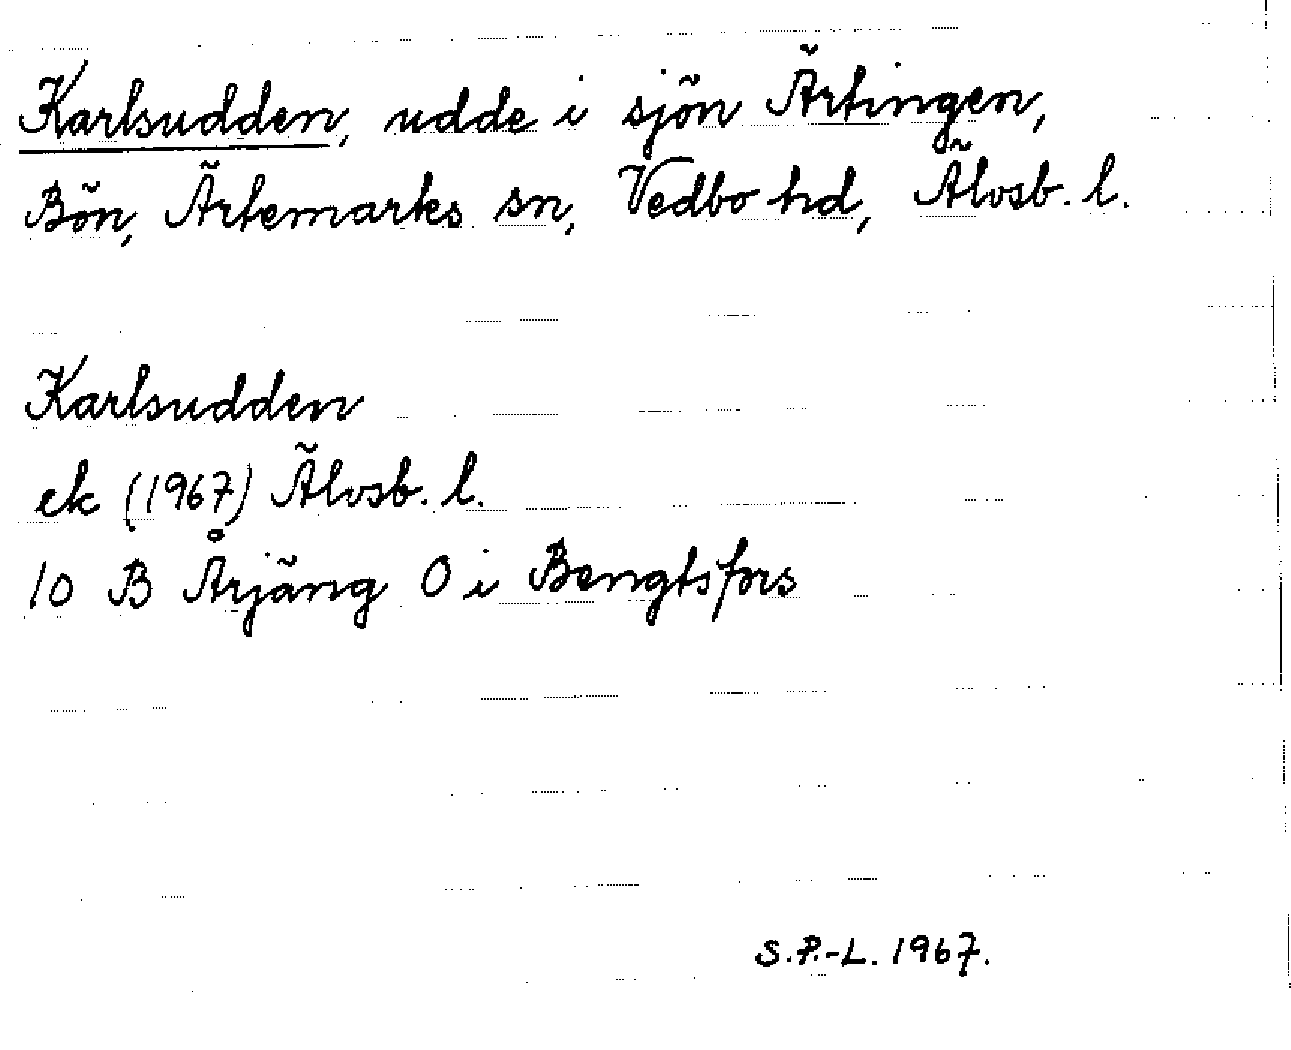 Karlsudden, udde i sjön Ärtingen,
Bön, Ärtemarks sn, Vedbo hd, Älvsb. l.
Karlsudden
ek (1967) Älvsb. l.
10 B Årjäng O i Bengtsfors
S.P.-L. 1967.